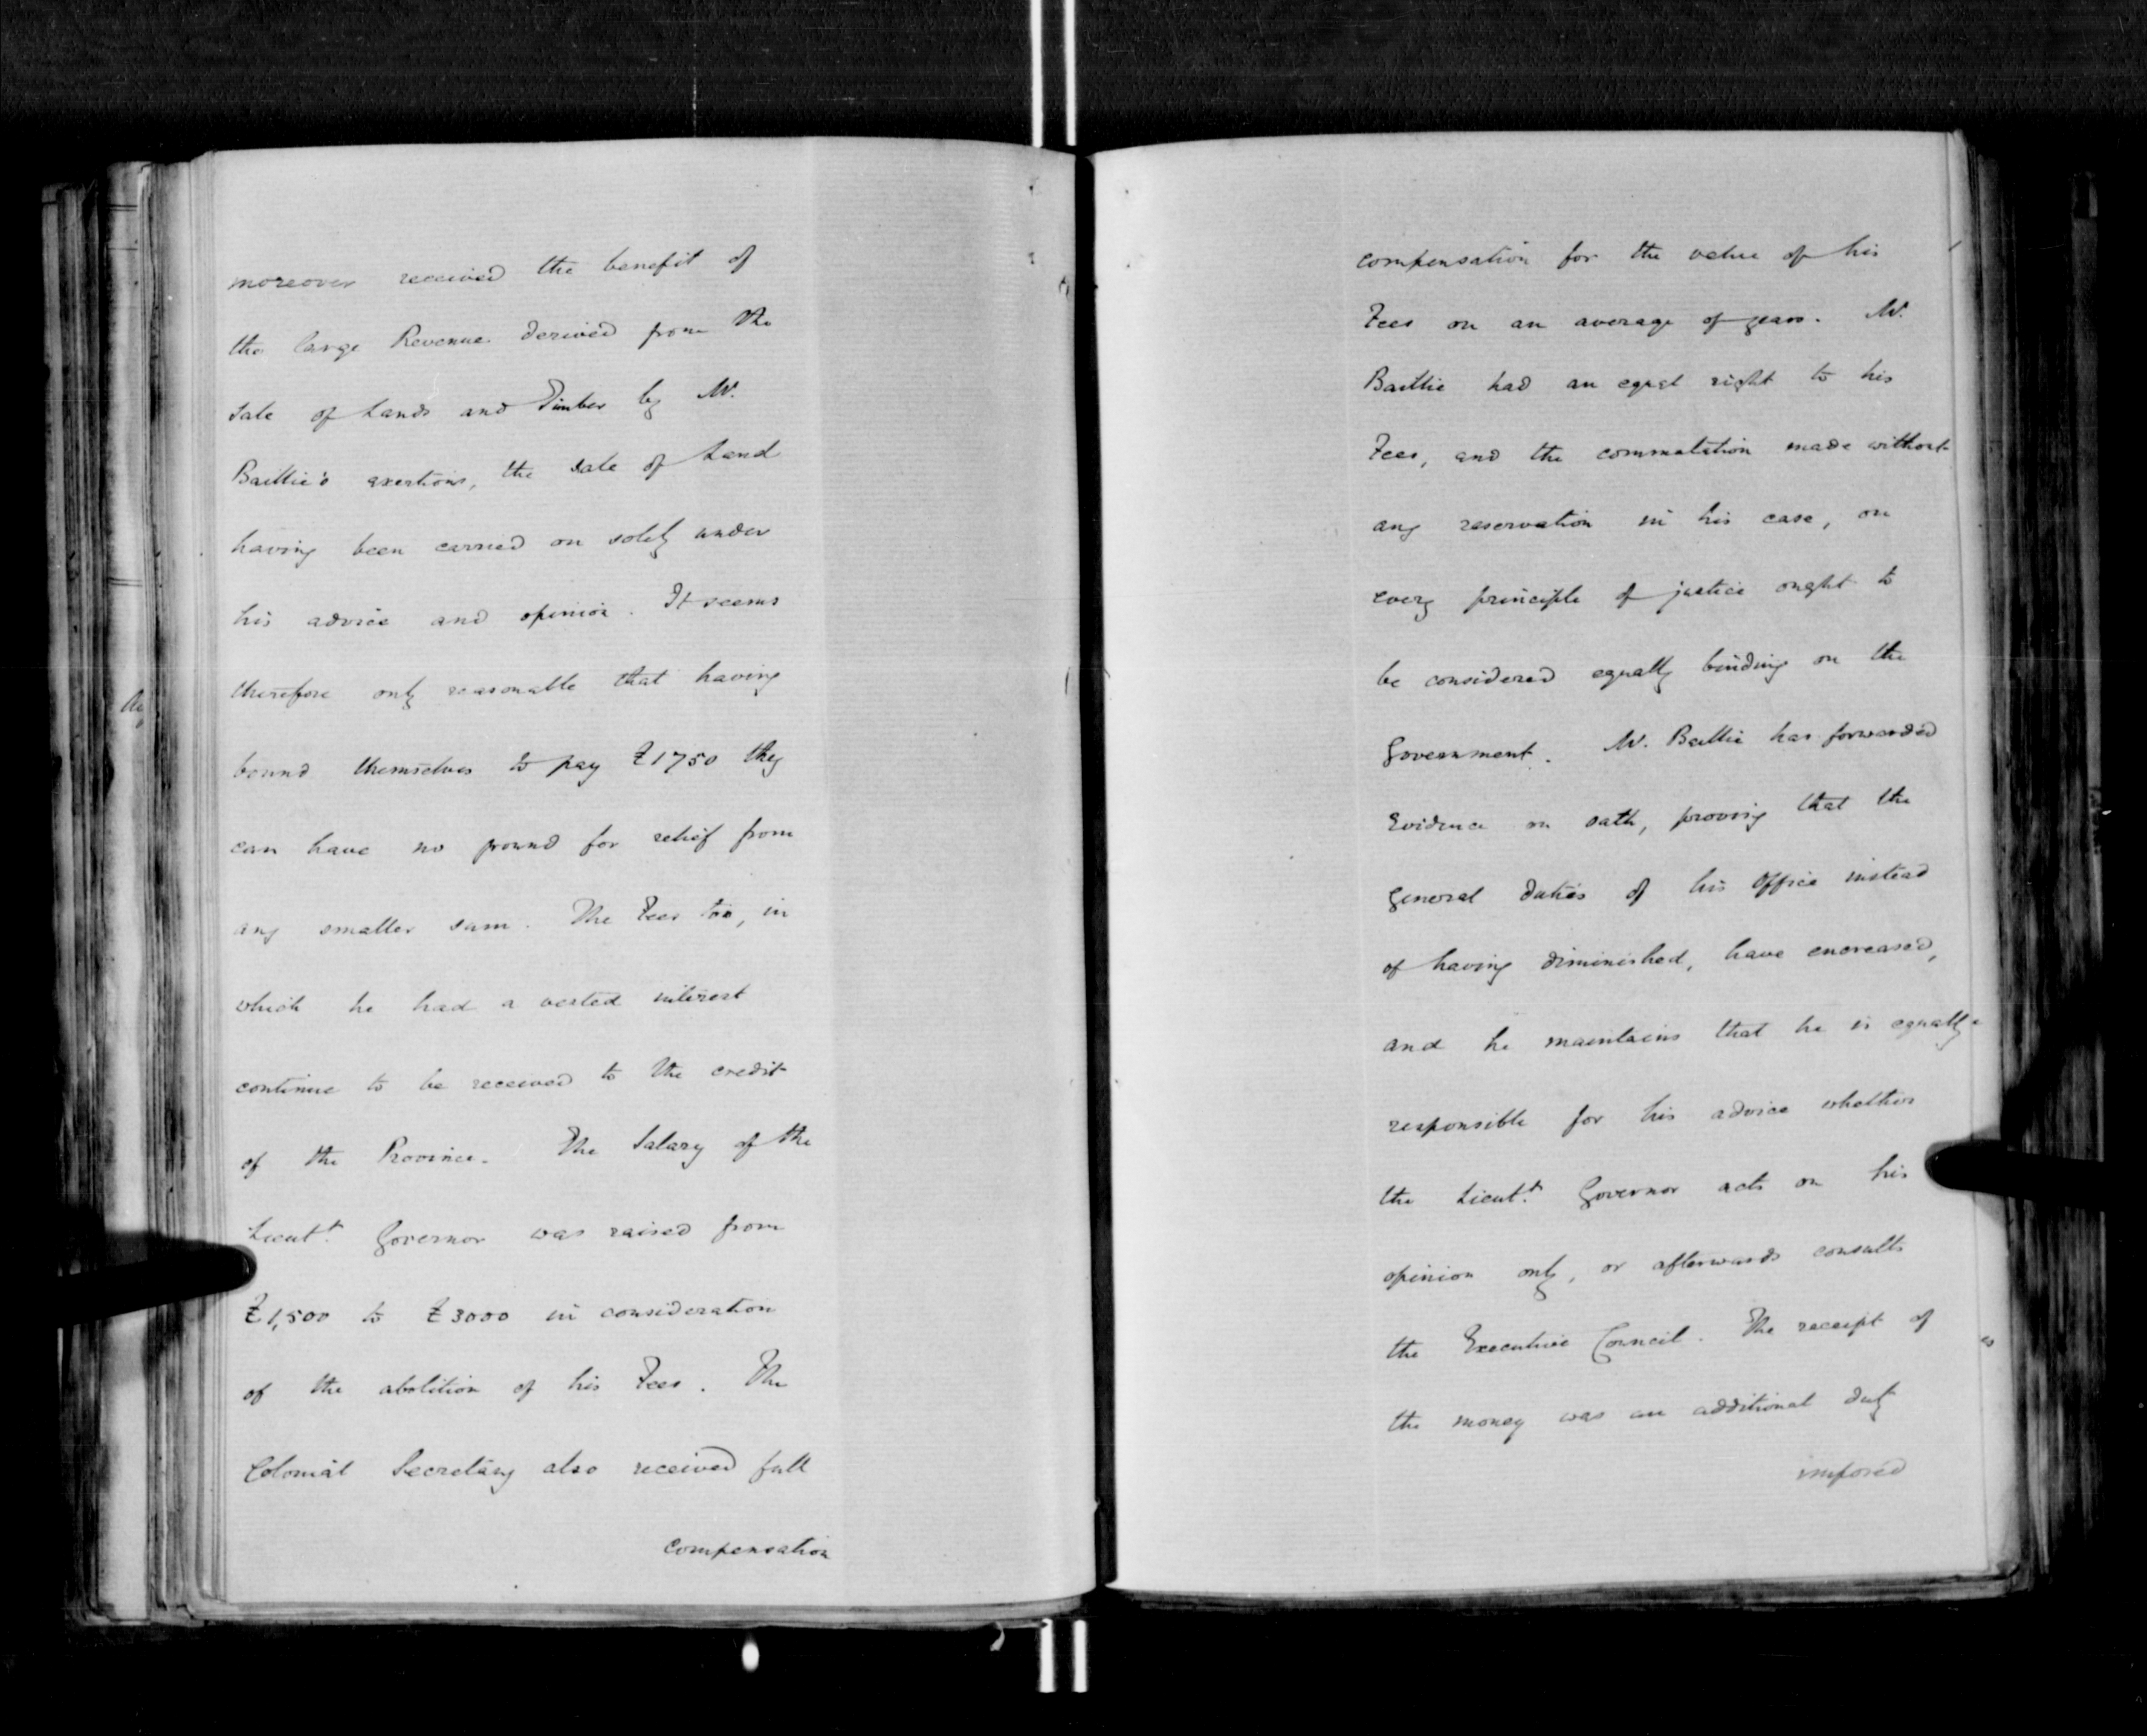 moreover received the benefit of
the large Revenue derived from the
Sale of Lands and Timber by Mr.
Baillie's exertions, the sale of Land
having been carried on solely under
his advice and opinion. It seems
therefore only reasonable that having
bound themselves to pay £1750 they
can have no ground for relief from
any smaller sum. The Fees too, in
which he had a vested interest
continue to be received to the credit
of the Province. The Salary of the
Lieut.t Governor was raised from
£1,500 to £3000 in consideration
of the abolition of his Fees. The
Colonial Secretary also received full
compensation
compensation for the value of his
Fees on an average of years. Mr.
Baillie had an equal right to his
Fees, and the commutation made without
any reservation in his case, on
every principle of justice ought to
be considered equally binding on the
Government. Mr. Baillie has forwarded
Evidence on oath, proving that the
General duties of his Office instead
of having diminished, have encreased,
and he maintains that he is equally
responsible for his advice whether
the Lieut.t Governor acts on his
opinion only, or afterwards consults
the Executive Council. The receipt of
the money was an additional duty
imposed